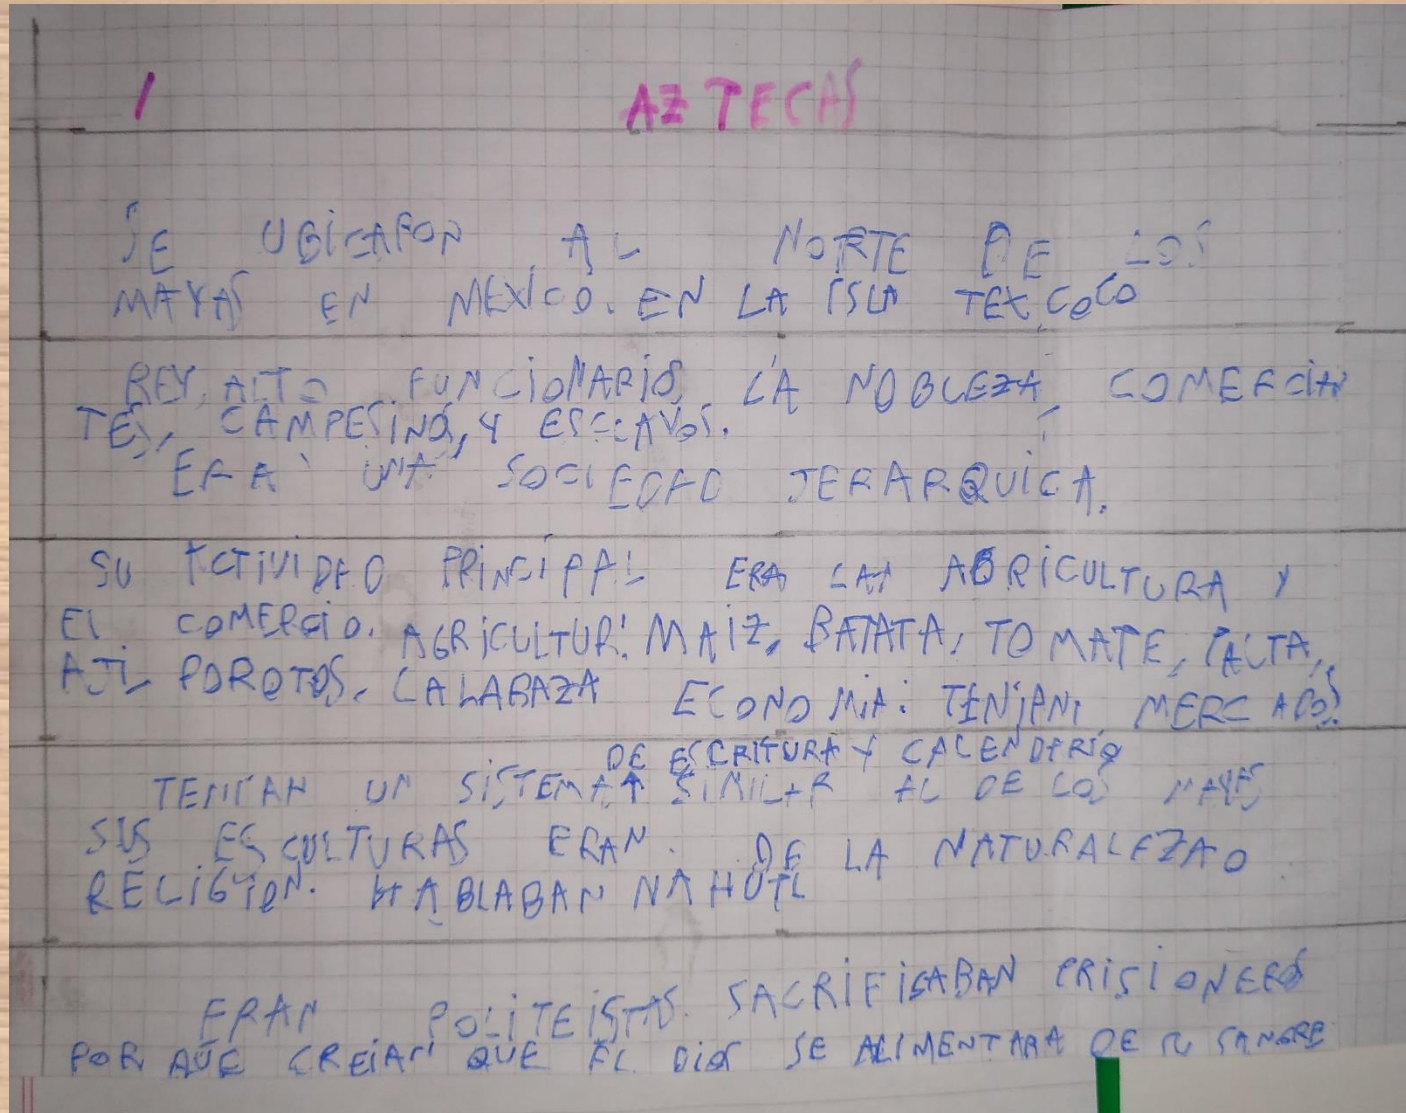 1 AZTECAS
SE UBICARON AL NORTE DE LOS
MAYAS EN MEXICO. EN LA ISLA TEXCOCO
REY, ALTO FUNCIONARIOS, LA NOBLEZA, COMERCIAN
TES, CAMPESINOS, Y ESCLAVOS.
ERA UNA SOCIEDAD JERARQUICA.
SU ACTIVIDAD PRINCIPAL ERA LA AGRICULTURA Y
EL COMERCIO. AGRICULTUR: MAIZ, BATATA, TOMATE, PALTA,
AJI, POROTOS, CALABAZA ECONOMIA: TENIAN MERCADOS.
DE ESCRITURA Y CALENDARIO
TENIAN UN SISTEMA ↑ SIMILAR AL DE LOS MAYAS
SUS ESCULTURAS ERAN. DE LA NATURALEZA O
RELIGION. HABLABAN NAHUTL
ERAN POLITEISTAS. SACRIFICABAN PRISIONEROS
POR QUE CREIAN QUE EL DIOS SE ALIMENTARA DE SU SANGRE